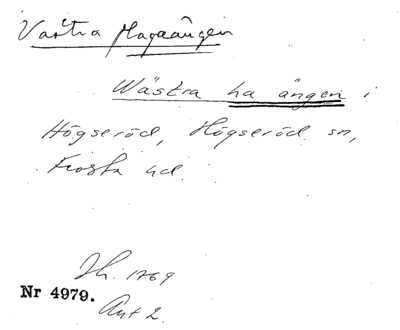 Västra Hagaängen
Wästra ha ängen i
Högseröd, Högseröd sn,
Frosta hd.
Jh. 1769
Nr 4979.
Akt 2.